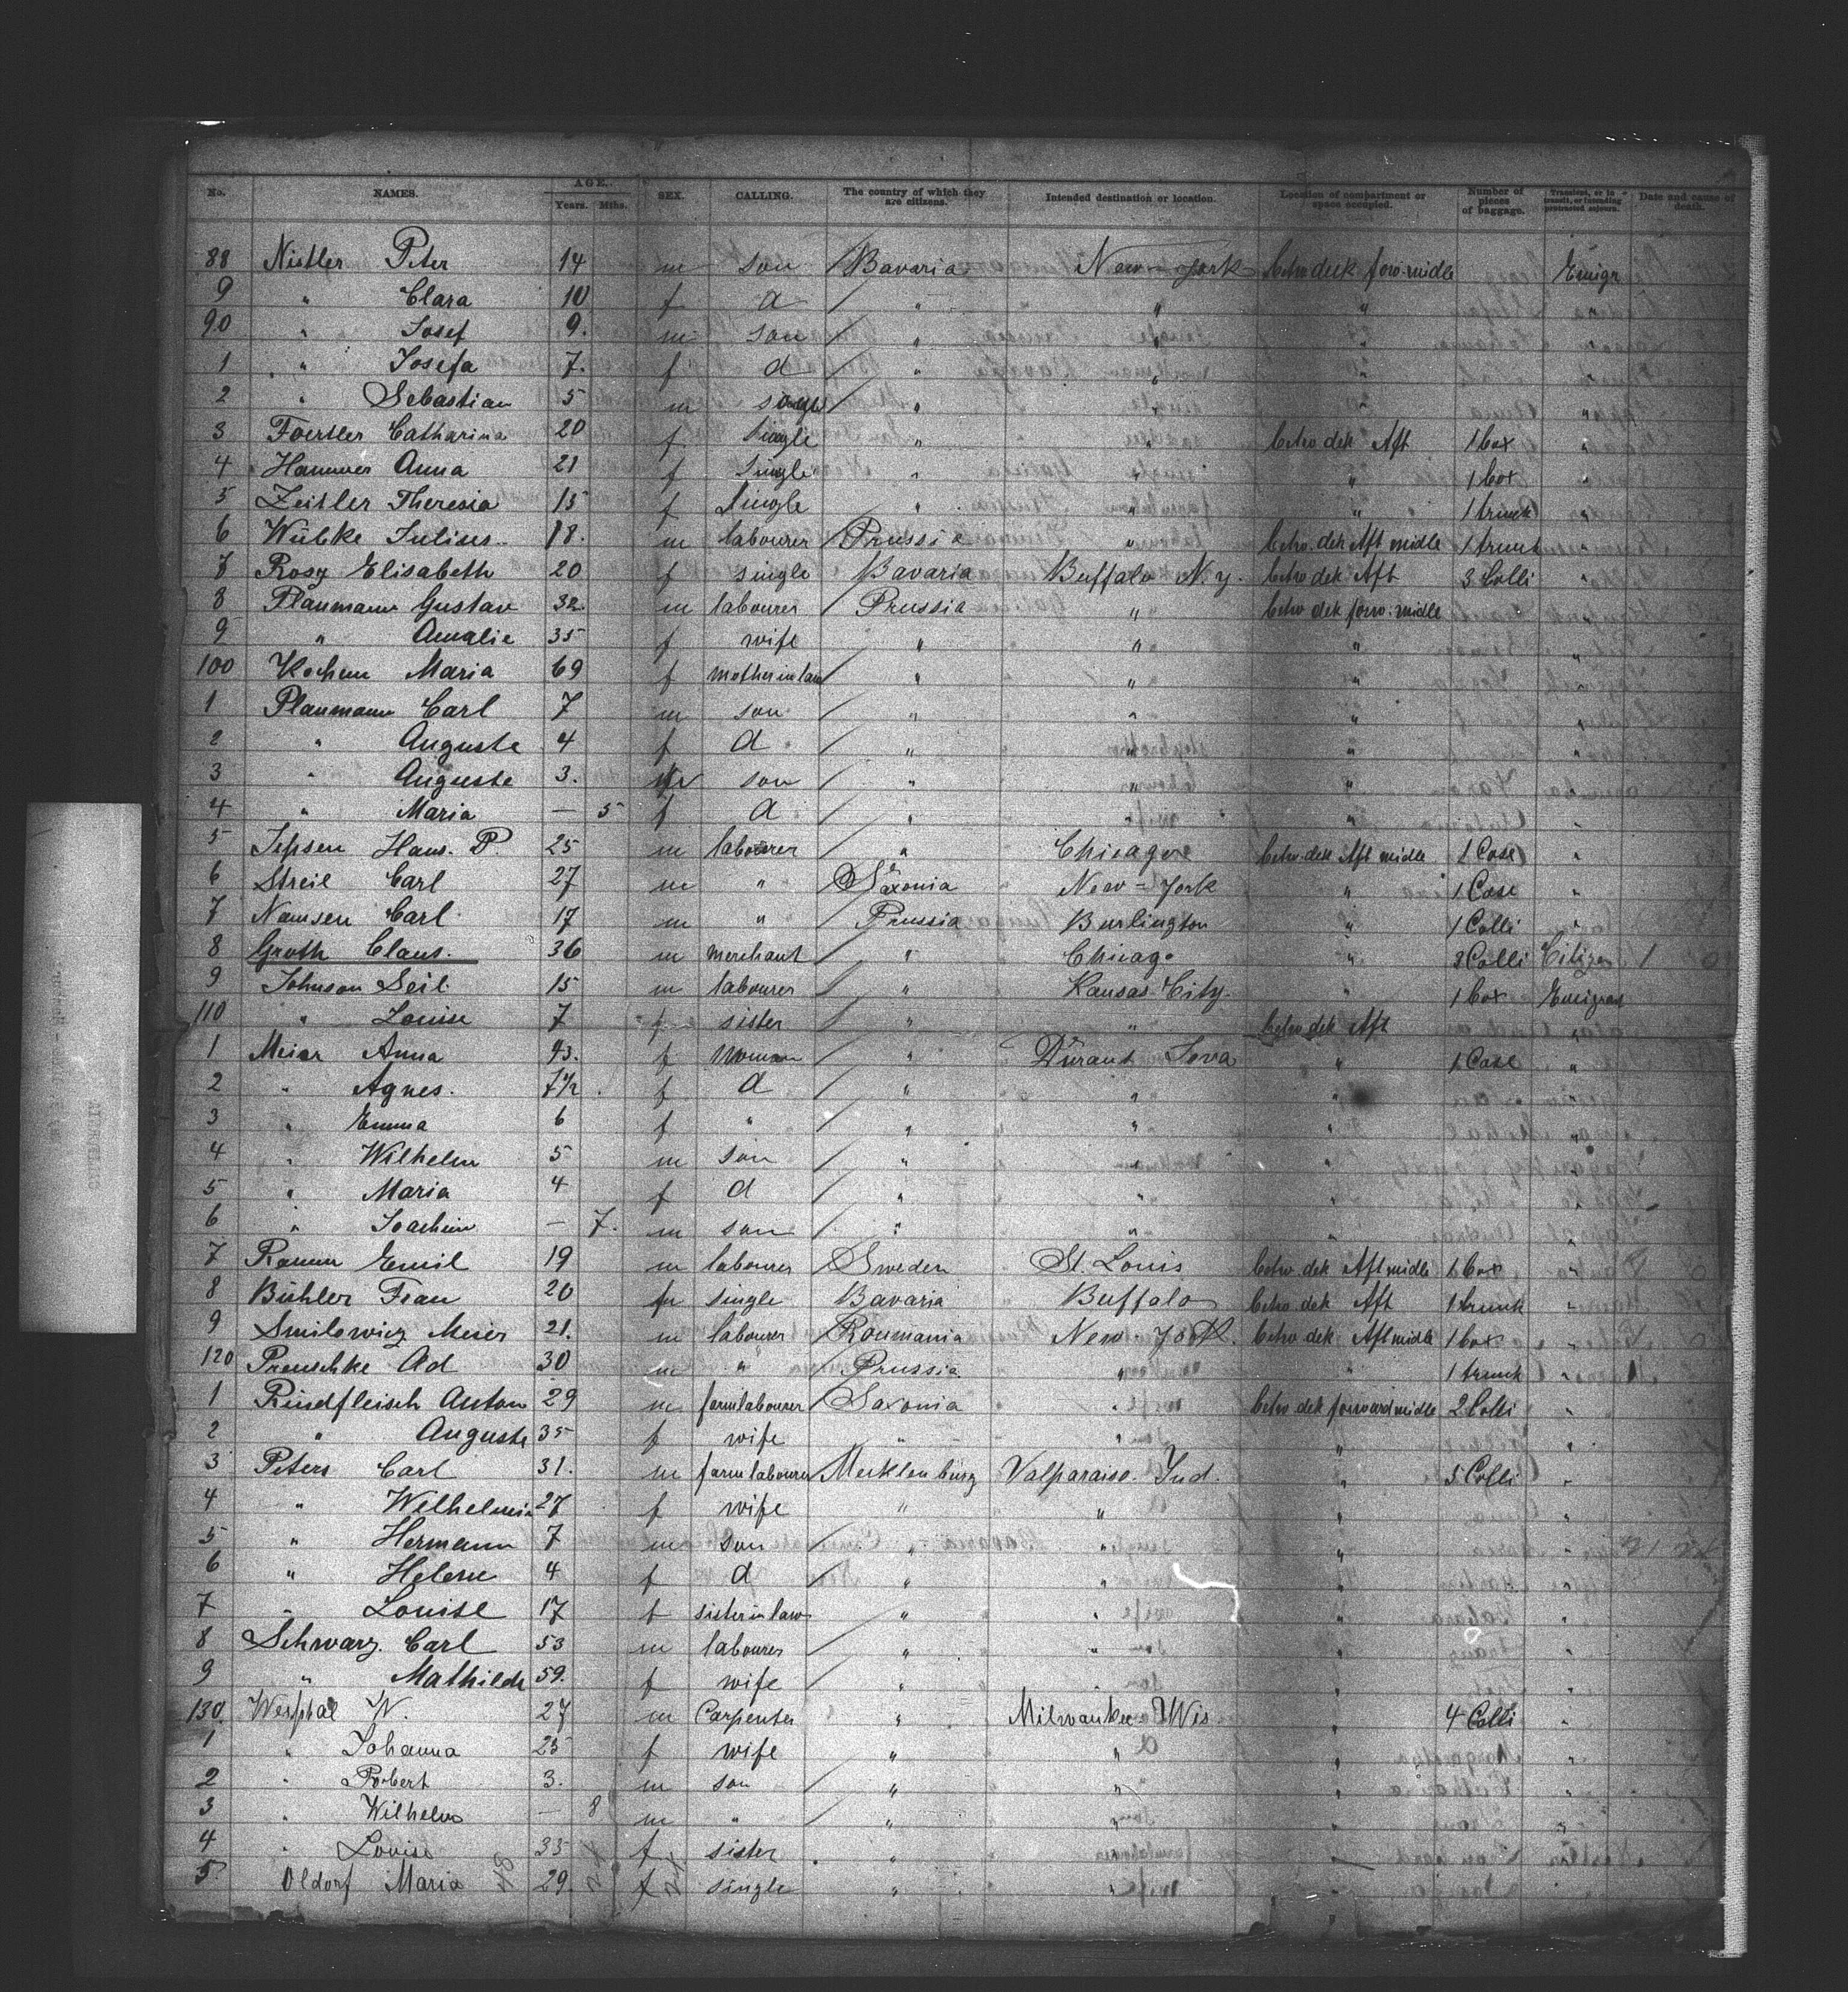 No. NAMES. AGE. Years. Mths. SEX. CALLING. The country of which they are citizens. Intended destination or location. Location of compartment or space occupied. Number of pieces of baggage. Transient, or in transit, or intending protracted sojourn. Date and cause of death.
88 Nistler Peter 14 m son Bavaria New-York betw deck forw. midle Emigr
9 " Clara 10 f d " " "
90 " Josef 9. m son " " "
1 " Josefa 7. f d " " "
2 " Sebastian 5 m " " "
3 Foertler Catharina 20 f single " " betw dek Aft 1 box "
4 Hammer Anna 21 f single " " " 1 box "
5 Zeitler Theresia 15 f single " " " 1 trunk "
6 Wübke Julius 18. m labourer Prussia " betw. dek Aft midle 1 trunk "
7 Rosy Elisabeth 20 f single Bavaria Buffalo N.y. betw dek Aft 3 Colli "
8 Plaumann Gustav 32. m labourer Prussia " betw dek forw. midle
9 " Amalie 35 f wife " " "
100 Kochem Maria 69 f mother in law " " " "
1 Plaumann Carl 7 m son " " " "
2 " Auguste 4 f d " " " "
3 " Auguste 3. m son " " "
4 " Maria — 5 f d " " "
5 Jepsen Hans. P. 25 m labourer " Chicago betw. dek Aft midle 1 Case "
6 Streil Carl 27 m " Saxonia New-York " 1 Case "
7 Namsen Carl 17 m " Prussia Burlington " 1 Colli "
8 Groth Claus. 36 m merchant " Chicago " 3 Colli Citizen 1 0
9 Johnson Seil. 15 m labourer " Kansas City. " 1 box Emigrat
110 " Louise 7 f sister " " betw dek Aft "
1 Meier Anna 43. f woman " Durant Iowa " 1 Case "
2 " Agnes. 7 1/2 f d " " "
3 " Emma 6 f " " " "
4 " Wilhelm 5 m son " " "
5 " Maria 4 f d " " "
6 " Joachim — 7. m son " " "
7 Ramm Emil 19 m labourer Sweden St. Louis betw. dek Aft midle 1 box "
8 Bühler Frau 20 f single Bavaria Buffalo betw dek Aft 1 trunk "
9 Smilowicz Meier 21. m labourer Roumania New-York. betw dek Aft midle 1 box "
120 Preuschke Ad 30 m " Prussia " " 1 trunk "
1 Rindfleisch Anton 29 m farmlabourer Saxonia " betw dek forward midle 2 Colli "
2 " Auguste 35 f wife " " " "
3 Peters Carl 31. m farmlabourer Mecklenburg Valparaiso. Ind. " 5 Colli "
4 " Wilhelmin 27 f wife " " " "
5 " Hermann 7 m son " " " "
6 " Helene 4 f d " " " "
7 " Louise 17 f sister in law " " " "
8 Schwarz. Carl 53 m labourer " " " "
9 " Mathilde 59. f wife " " " "
130. Westphal W. 27 m Carpenter " Milwaukee Wis " 4 Colli "
1 " Johanna 25 f wife " " " "
2 " Robert 3. m son " " " "
3 " Wilhelm — 8 m " " " " "
4 " Louise 35 f sister " " "
5 Oldorf Maria 29. f single " " " "